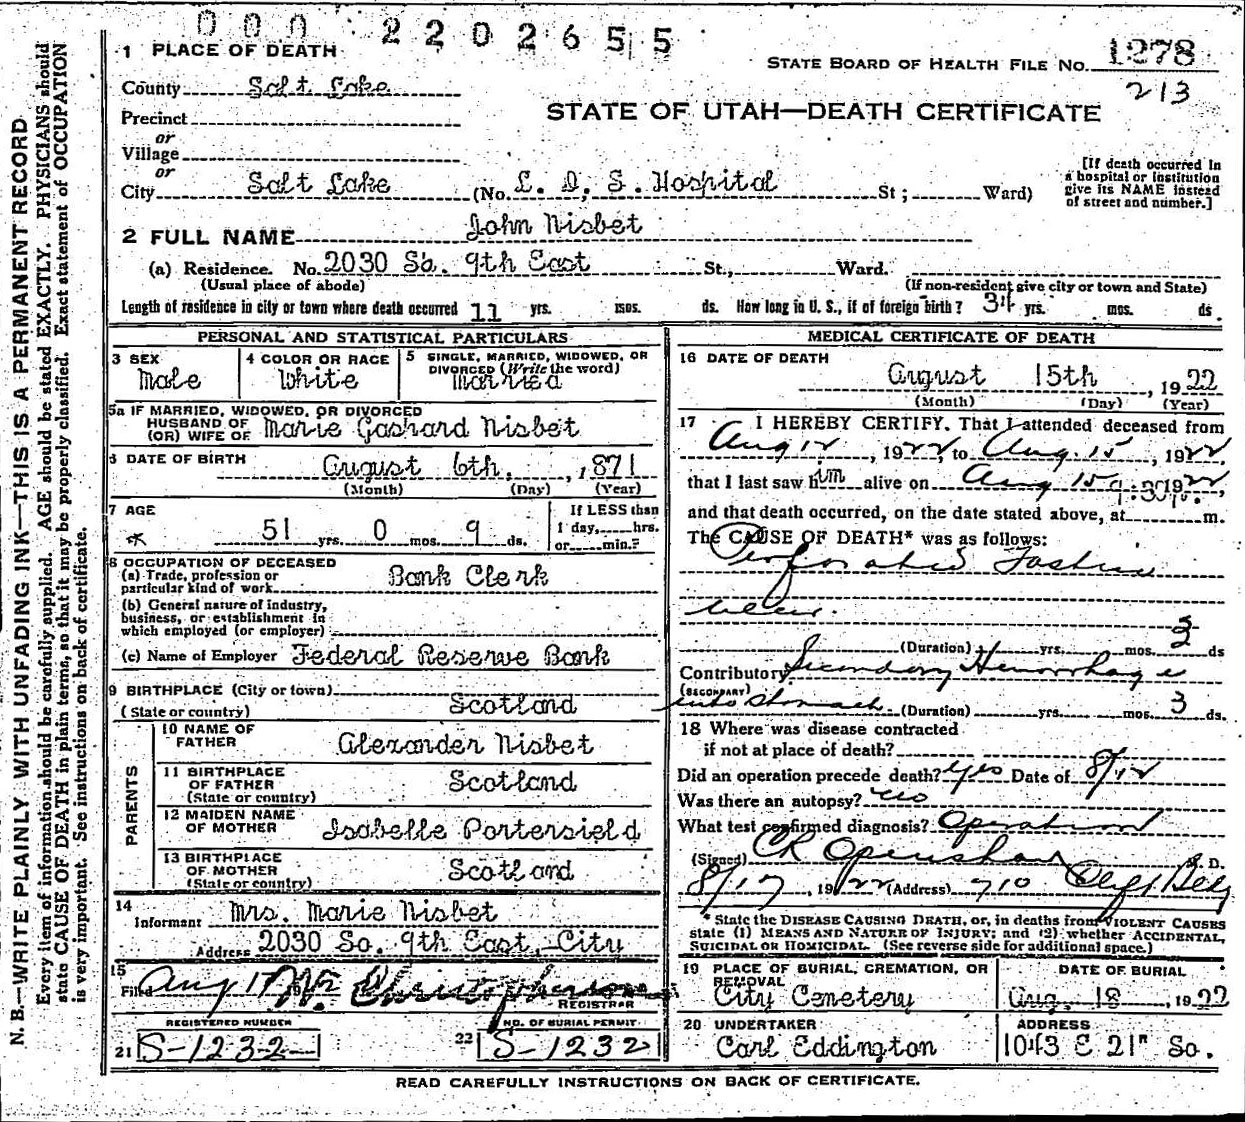 000 2202655
1 PLACE OF DEATH
STATE BOARD OF HEALTH FILE No. 1278
213
County Salt Lake
STATE OF UTAH—DEATH CERTIFICATE
Precinct
or
Village
or
City Salt Lake (No. L. D. S. Hospital St; Ward)
[If death occurred in
a hospital or institution
give its NAME instead
of street and number.]
2 FULL NAME John Nisbet
(a) Residence. No. 2030 So. 9th East St., Ward.
(Usual place of abode) (If non-resident give city or town and State)
Length of residence in city or town where death occurred 11 yrs. mos. ds. How long in U. S., if of foreign birth? 34 yrs. mos. ds.
PERSONAL AND STATISTICAL PARTICULARS
3 SEX
Male
4 COLOR OR RACE
White
5 SINGLE, MARRIED, WIDOWED, OR
DIVORCED (Write the word)
Married
5a IF MARRIED, WIDOWED, OR DIVORCED
HUSBAND OF
(OR) WIFE OF Marie Gashard Nisbet
6 DATE OF BIRTH August 6th, 1871
(Month) (Day) (Year)
7 AGE
51 yrs. 0 mos. 9 ds.
If LESS than
1 day, hrs.
or min.?
8 OCCUPATION OF DECEASED
(a) Trade, profession or
particular kind of work Bank Clerk
(b) General nature of industry,
business, or establishment in
which employed (or employer)
(c) Name of Employer Federal Reserve Bank
9 BIRTHPLACE (City or town)
(State or country) Scotland
PARENTS
10 NAME OF
FATHER Alexander Nisbet
11 BIRTHPLACE
OF FATHER
(State or country) Scotland
12 MAIDEN NAME
OF MOTHER Isabelle Portersield
13 BIRTHPLACE
OF MOTHER
(State or country) Scotland
14
Informant Mrs. Marie Nisbet
Address 2030 So. 9th East, City
15
Filed Aug 17 Christopherson
REGISTRAR
REGISTERED NUMBER
21 S-1232
NO. OF BURIAL PERMIT
22 S-1232
MEDICAL CERTIFICATE OF DEATH
16 DATE OF DEATH
August 15th, 1922
(Month) (Day) (Year)
17 I HEREBY CERTIFY, That I attended deceased from
Aug 12, 1922, to Aug. 15, 1922
that I last saw him alive on Aug 15, 1922
and that death occurred, on the date stated above, at m.
The CAUSE OF DEATH* was as follows:
Perforated Gastric
ulcer.
(Duration) yrs. mos. 3 ds
Contributory Secondary Hemorrhage
(SECONDARY)
into stomach (Duration) yrs. mos. 3 ds.
18 Where was disease contracted
if not at place of death?
Did an operation precede death? yes Date of 8/12
Was there an autopsy? no
What test confirmed diagnosis? Operation
(Signed) CR Openshaw M. D.
8/17, 1922 (Address) 710 Cliff Bldg
* State the DISEASE CAUSING DEATH, or, in deaths from VIOLENT CAUSES
state (1) MEANS AND NATURE OF INJURY; and (2) whether ACCIDENTAL,
SUICIDAL OR HOMICIDAL. (See reverse side for additional space.)
19 PLACE OF BURIAL, CREMATION, OR
REMOVAL
City Cemetery
DATE OF BURIAL
Aug. 18, 1922
20 UNDERTAKER
Carl Eddington
ADDRESS
1043 E 21" So.
READ CAREFULLY INSTRUCTIONS ON BACK OF CERTIFICATE.
N. B.—WRITE PLAINLY WITH UNFADING INK—THIS IS A PERMANENT RECORD
Every item of information should be carefully supplied. AGE should be stated EXACTLY. PHYSICIANS should
state CAUSE OF DEATH in plain terms, so that it may be properly classified. Exact statement of OCCUPATION
is very important. See instructions on back of certificate.